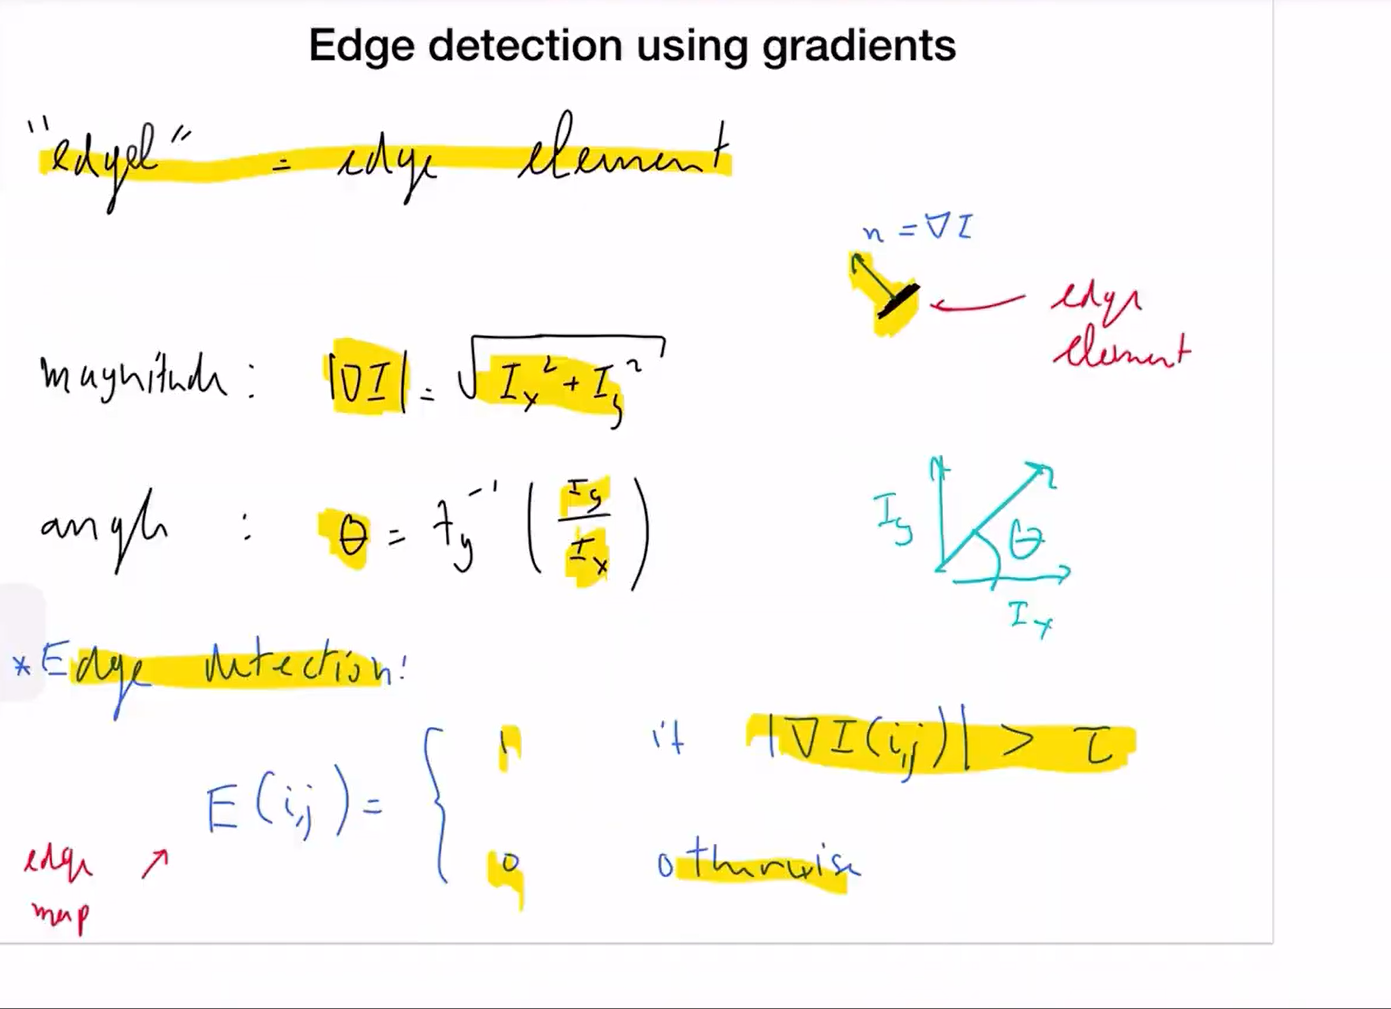 Edge detection using gradients
"edgel" = edge element
n = ∇I
edge
element
magnitude: |∇I| = √(Ix² + Iy²)
angle : θ = tg⁻¹ (Iy/Ix)
Iy
θ
Ix
* Edge detection:
E(i,j) = { 1 if |∇I(i,j)| > τ
0 otherwise
edge
map